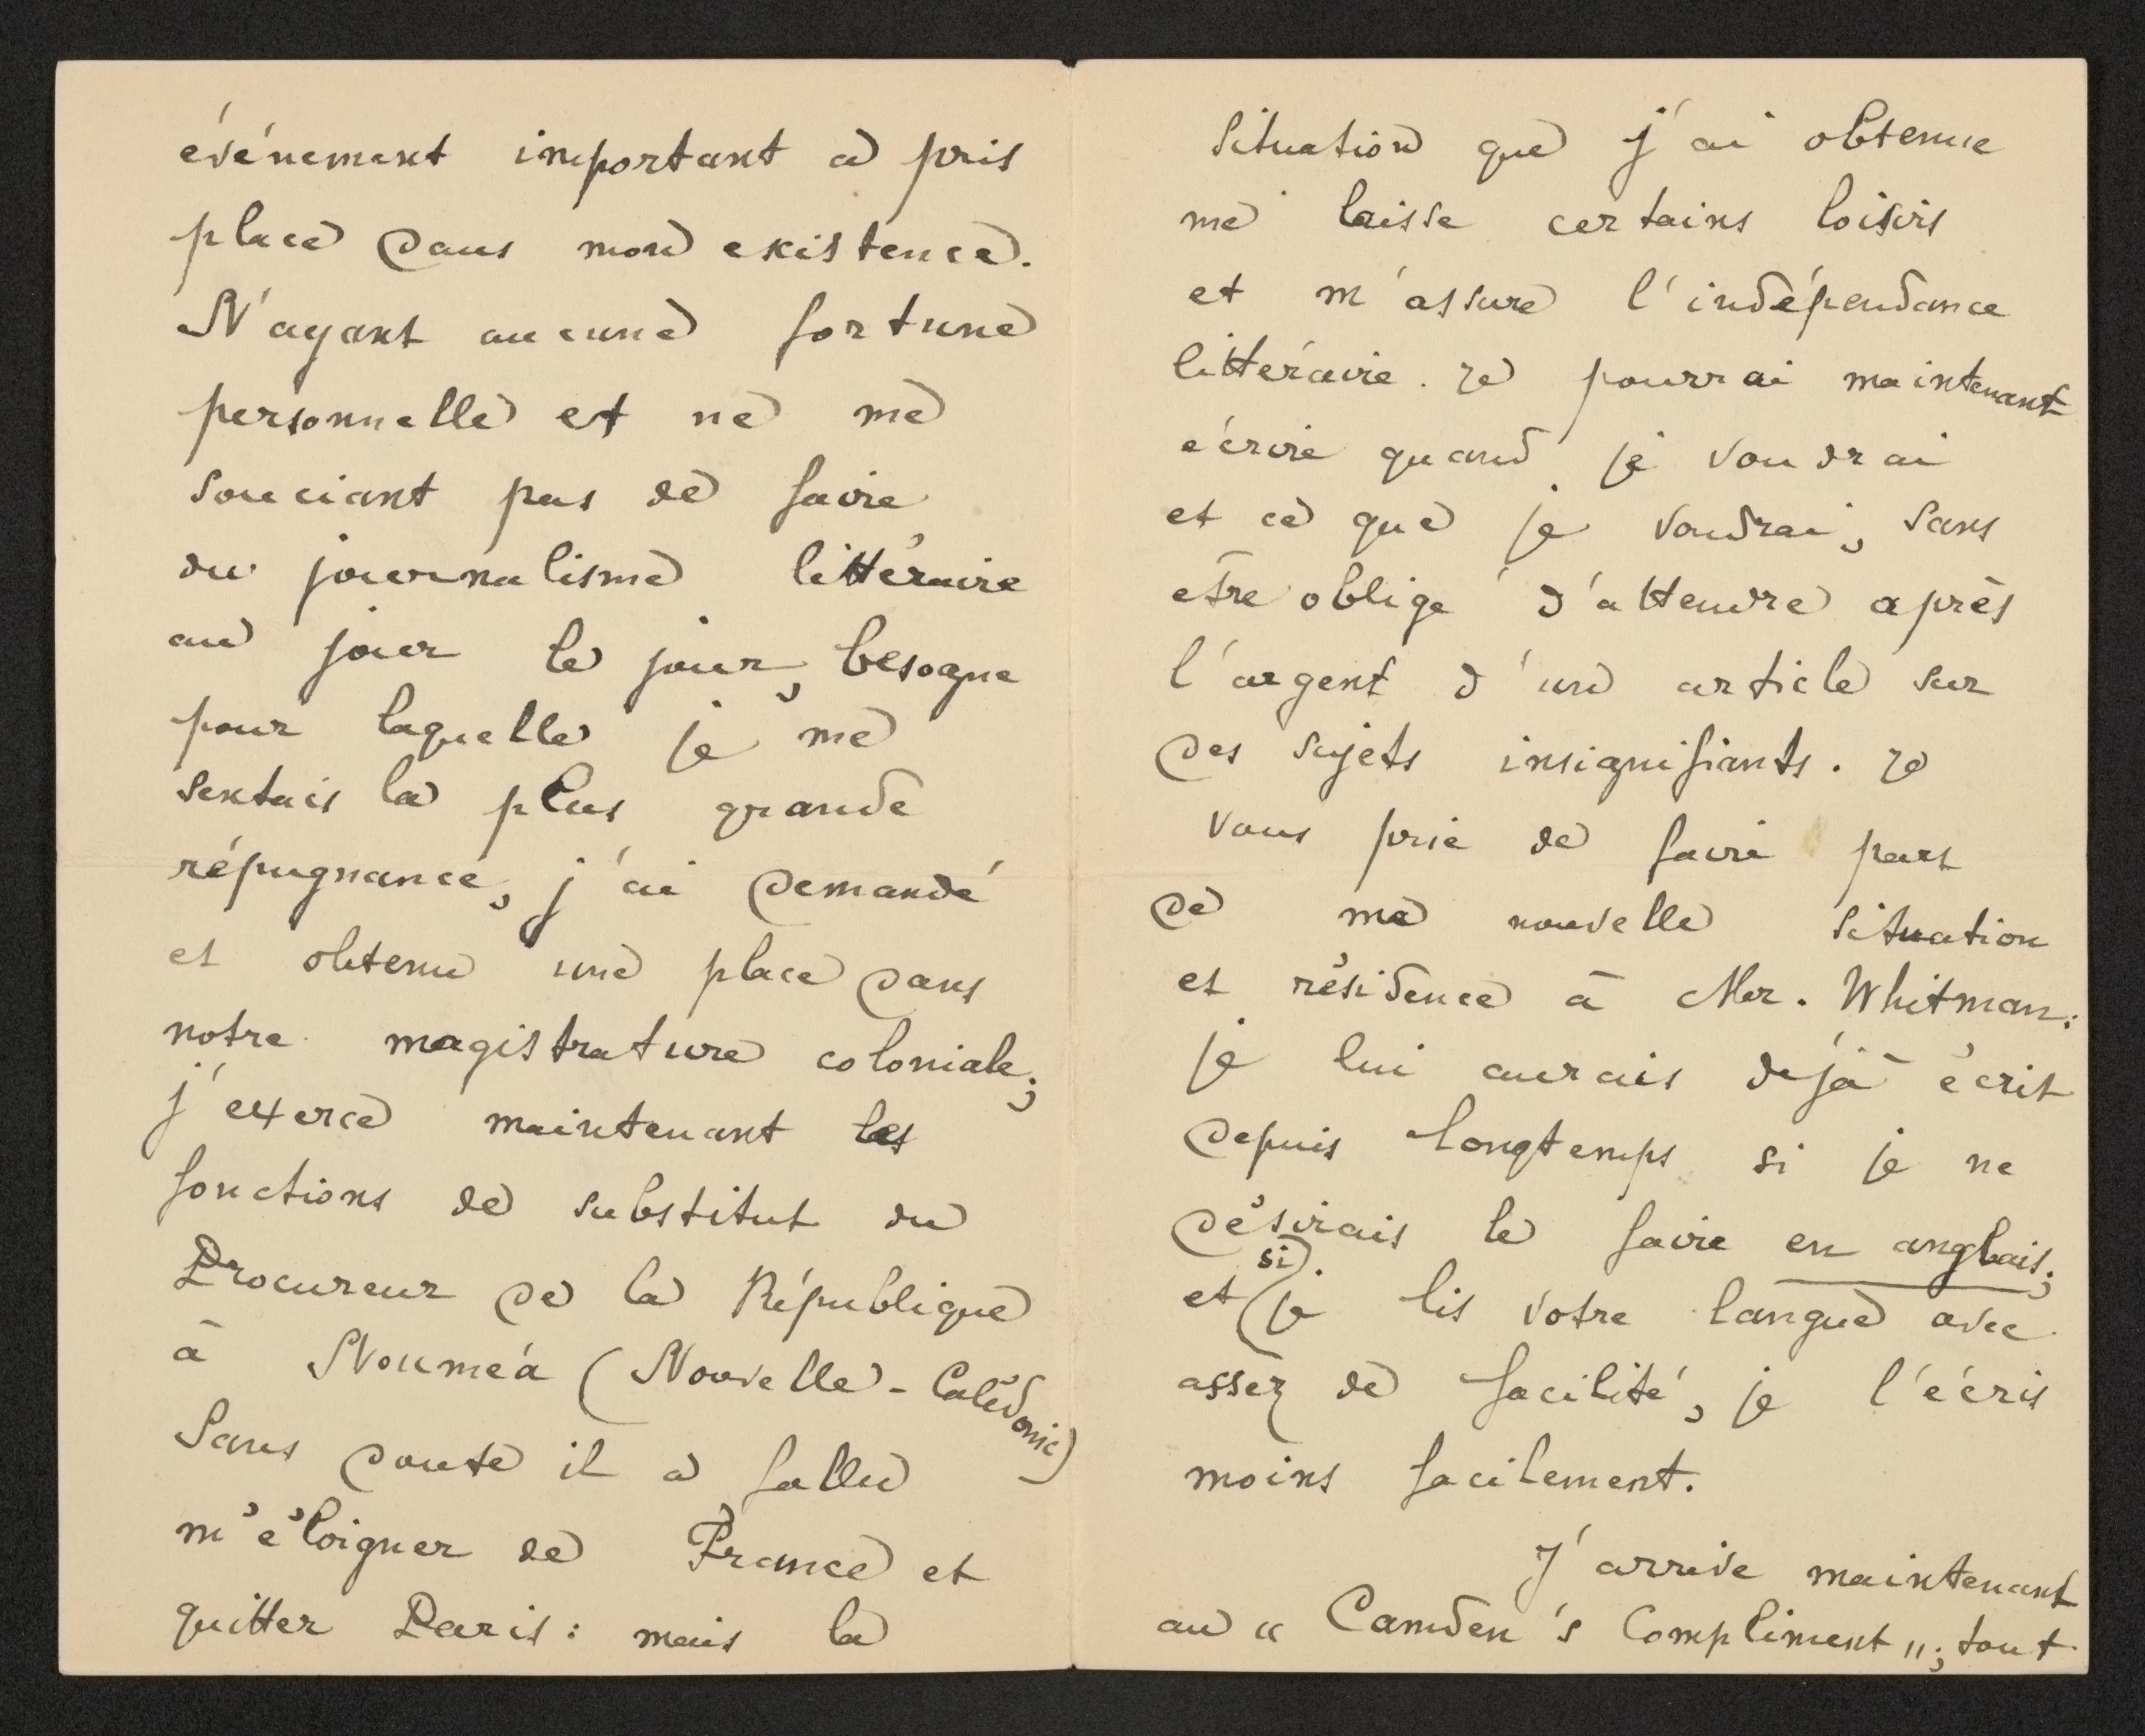 événement important a pris
place dans mon existence.
N'ayant aucune fortune
personnelle et ne me
souciant pas de faire
du journalisme littéraire
au jour le jour, besogne
pour laquelle je me
sentais la plus grande
répugnance, j'ai demandé
et obtenu une place dans
notre magistrature coloniale;
j'exerce maintenant les
fonctions de substitut du
Procureur de la République
à Nouméa (Nouvelle-Calédonie)
Sans doute il a fallu
m'éloigner de France et
quitter Paris: mais la
situation que j'ai obtenue
me laisse certains loisirs
et m'assure l'indépendance
littéraire. Je pourrai maintenant
écrire quand je voudrai
et ce que je voudrai, sans
être obligé d'attendre après
l'argent d'un article sur
des sujets insignifiants. Je
vous prie de faire part
de ma nouvelle situation
et résidence à Mr. Whitman:
je lui aurais déjà écrit
depuis longtemps si je ne
désirais le faire en anglais;
et si je lis votre langue avec
assez de facilité, je l'écris
moins facilement.
J'arrive maintenant
au "Camden's Compliment"; tout